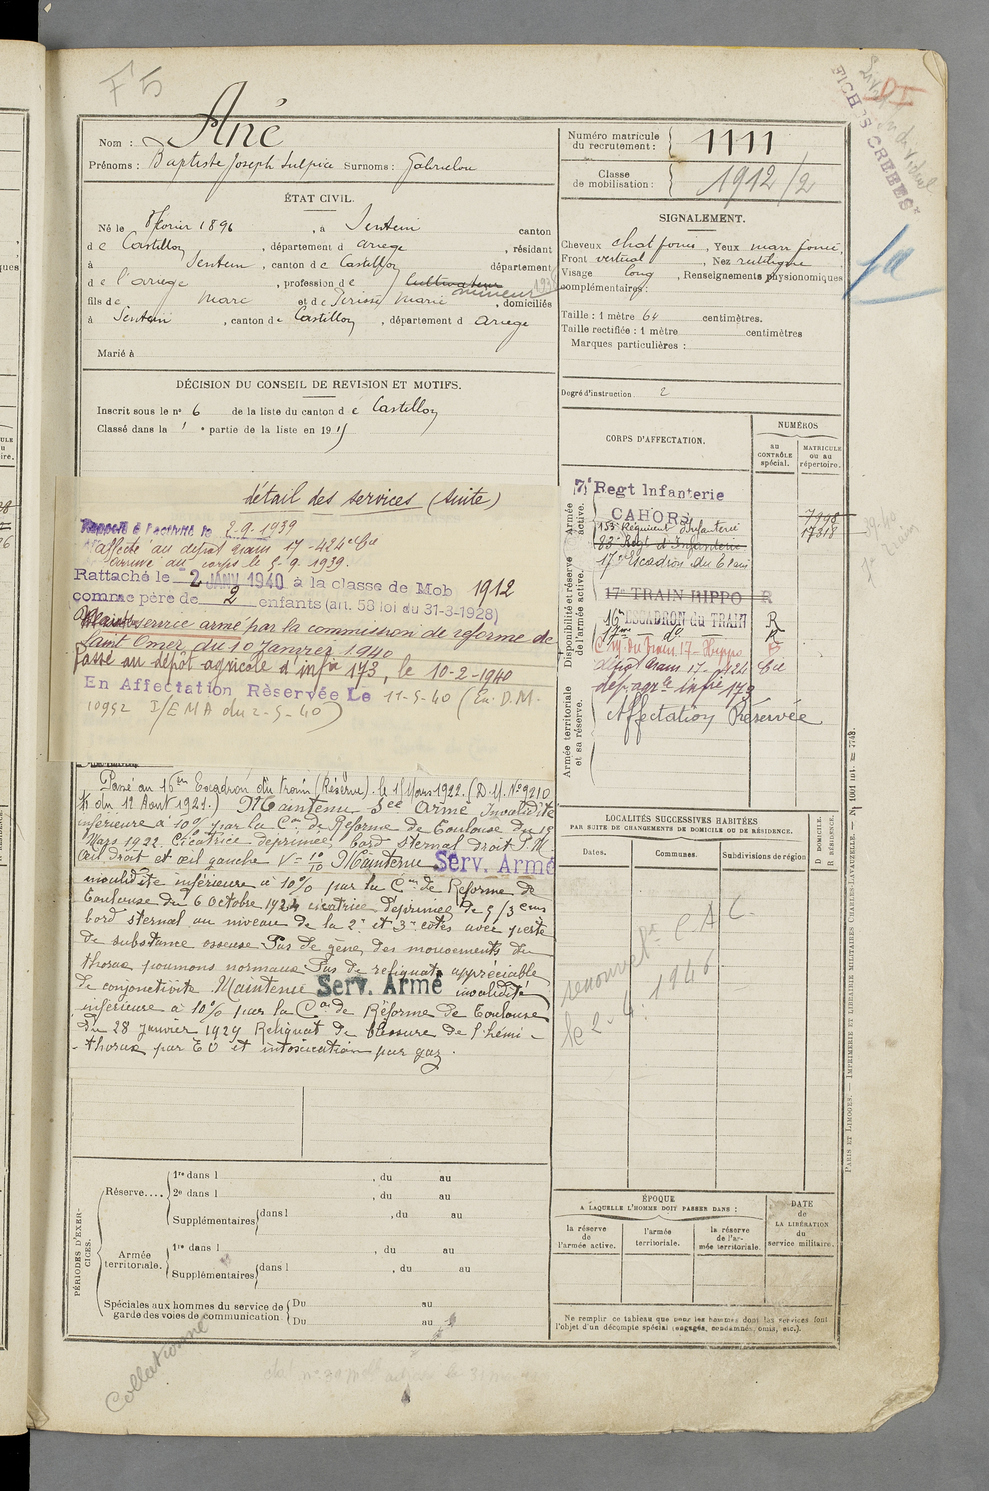 F5
Nom : Ané
Prénoms : Baptiste Joseph Sulpice Surnoms : Gabrielou
Numéro matricule du recrutement : 1111
Classe de mobilisation : 1912/2
FICHES CREEES
ÉTAT CIVIL.
Né le 8 février 1896, à Sentein canton
de Castillon, département d ariege, résidant
à Sentein, canton de Castillon département
de l'ariege, profession de Cultivateur mineur
fils de Marc et de Marie, domiciliés
à Sentein, canton de Castillon, département d ariege
Marié à
SIGNALEMENT.
Cheveux chat foncé, Yeux marr foncé,
Front vertical, Nez rectiligne
Visage long, Renseignements physionomiques
complémentaires :
Taille : 1 mètre 64 centimètres.
Taille rectifiée : 1 mètre centimètres
Marques particulières :
Degré d'instruction 2
DÉCISION DU CONSEIL DE REVISION ET MOTIFS.
Inscrit sous le n° 6 de la liste du canton de Castillon
Classé dans la 1e partie de la liste en 1915
CORPS D'AFFECTATION.
NUMÉROS
au CONTRÔLE spécial.
MATRICULE ou au répertoire.
Armée active.
7e Regt Infanterie
CAHORS
153e Régiment d'Infanterie
83e Regt d'Infanterie
17e Escadron du Train
Disponibilité et réserve de l'armée active.
17e TRAIN HIPPO R
16e ESCADRON du TRAIN R
17me do R
dépôt train 17-424 Cie
dep agle infie 173
Armée territoriale et sa réserve.
Affectation Réservée
détail des services (suite)
Rappelé à l'activité le 2.9.1939
affecté au dépôt train 17-424e Cie
arrivé au corps le 5.9.1939.
Rattaché le 2 JANV 1940 à la classe de Mob 1912
comme père de 2 enfants (art. 58 loi du 31-3-1928)
service armé par la commission de réforme de
Saint Omer du 10 janvier 1940
Passé au dépôt agricole d'infie 173, le 10-2-1940
En Affectation Réservée Le 11-5-40 (En. D.M.
10952 I/EMA du 2-5-40)
Passé au 16em Escadron du train (Réserve). le 1 Mars 1922. (D.M. N° 9210
du 12 Aout 1921.) Maintenu Sce Armé Invalidité
inférieure à 10% par la Con de Réforme de Toulouse du 19
Mars 1922. Cicatrice déprimée bord sternal droit P.M.
Œil droit et œil gauche V= 10/10 Maintenu Serv. Armé
invalidité inférieure à 10% par la Con de Réforme de
Toulouse du 6 Octobre 1924 cicatrice déprimée de 5/3 cms
bord sternal au niveau de la 2e et 3e côtes avec perte
de substance osseuse Pas de gène des mouvements du
thorax poumons normaux Pas de reliquat appréciable
de conjonctivite Maintenu Serv. Armé invalidité
inférieure à 10% par la Con de Réforme de Toulouse
du 28 Janvier 1929 Reliquat de blessure de l'hémi-
-thorax par EO et intoxication par gaz.
LOCALITÉS SUCCESSIVES HABITÉES
PAR SUITE DE CHANGEMENTS DE DOMICILE OU DE RÉSIDENCE.
Dates. Communes. Subdivisions de région
D DOMICILE. R RÉSIDENCE.
le 2. 4. 1946
PÉRIODES D'EXERCICES.
Réserve....
1re dans l , du au
2e dans l , du au
Supplémentaires dans l , du au
Armée territoriale.
1re dans l , du au
Supplémentaires dans l , du au
Spéciales aux hommes du service de garde des voies de communication.
Du au
Du au
ÉPOQUE
A LAQUELLE L'HOMME DOIT PASSER DANS :
la réserve de l'armée active.
l'armée territoriale.
la réserve de l'armée territoriale.
DATE de LA LIBÉRATION du service militaire.
Ne remplir ce tableau que pour les hommes dont les services font
l'objet d'un décompte spécial (engagés, condamnés, omis, etc.).
PARIS ET LIMOGES. — IMPRIMERIE ET LIBRAIRIE MILITAIRES CHARLES-LAVAUZELLE.
Collationné